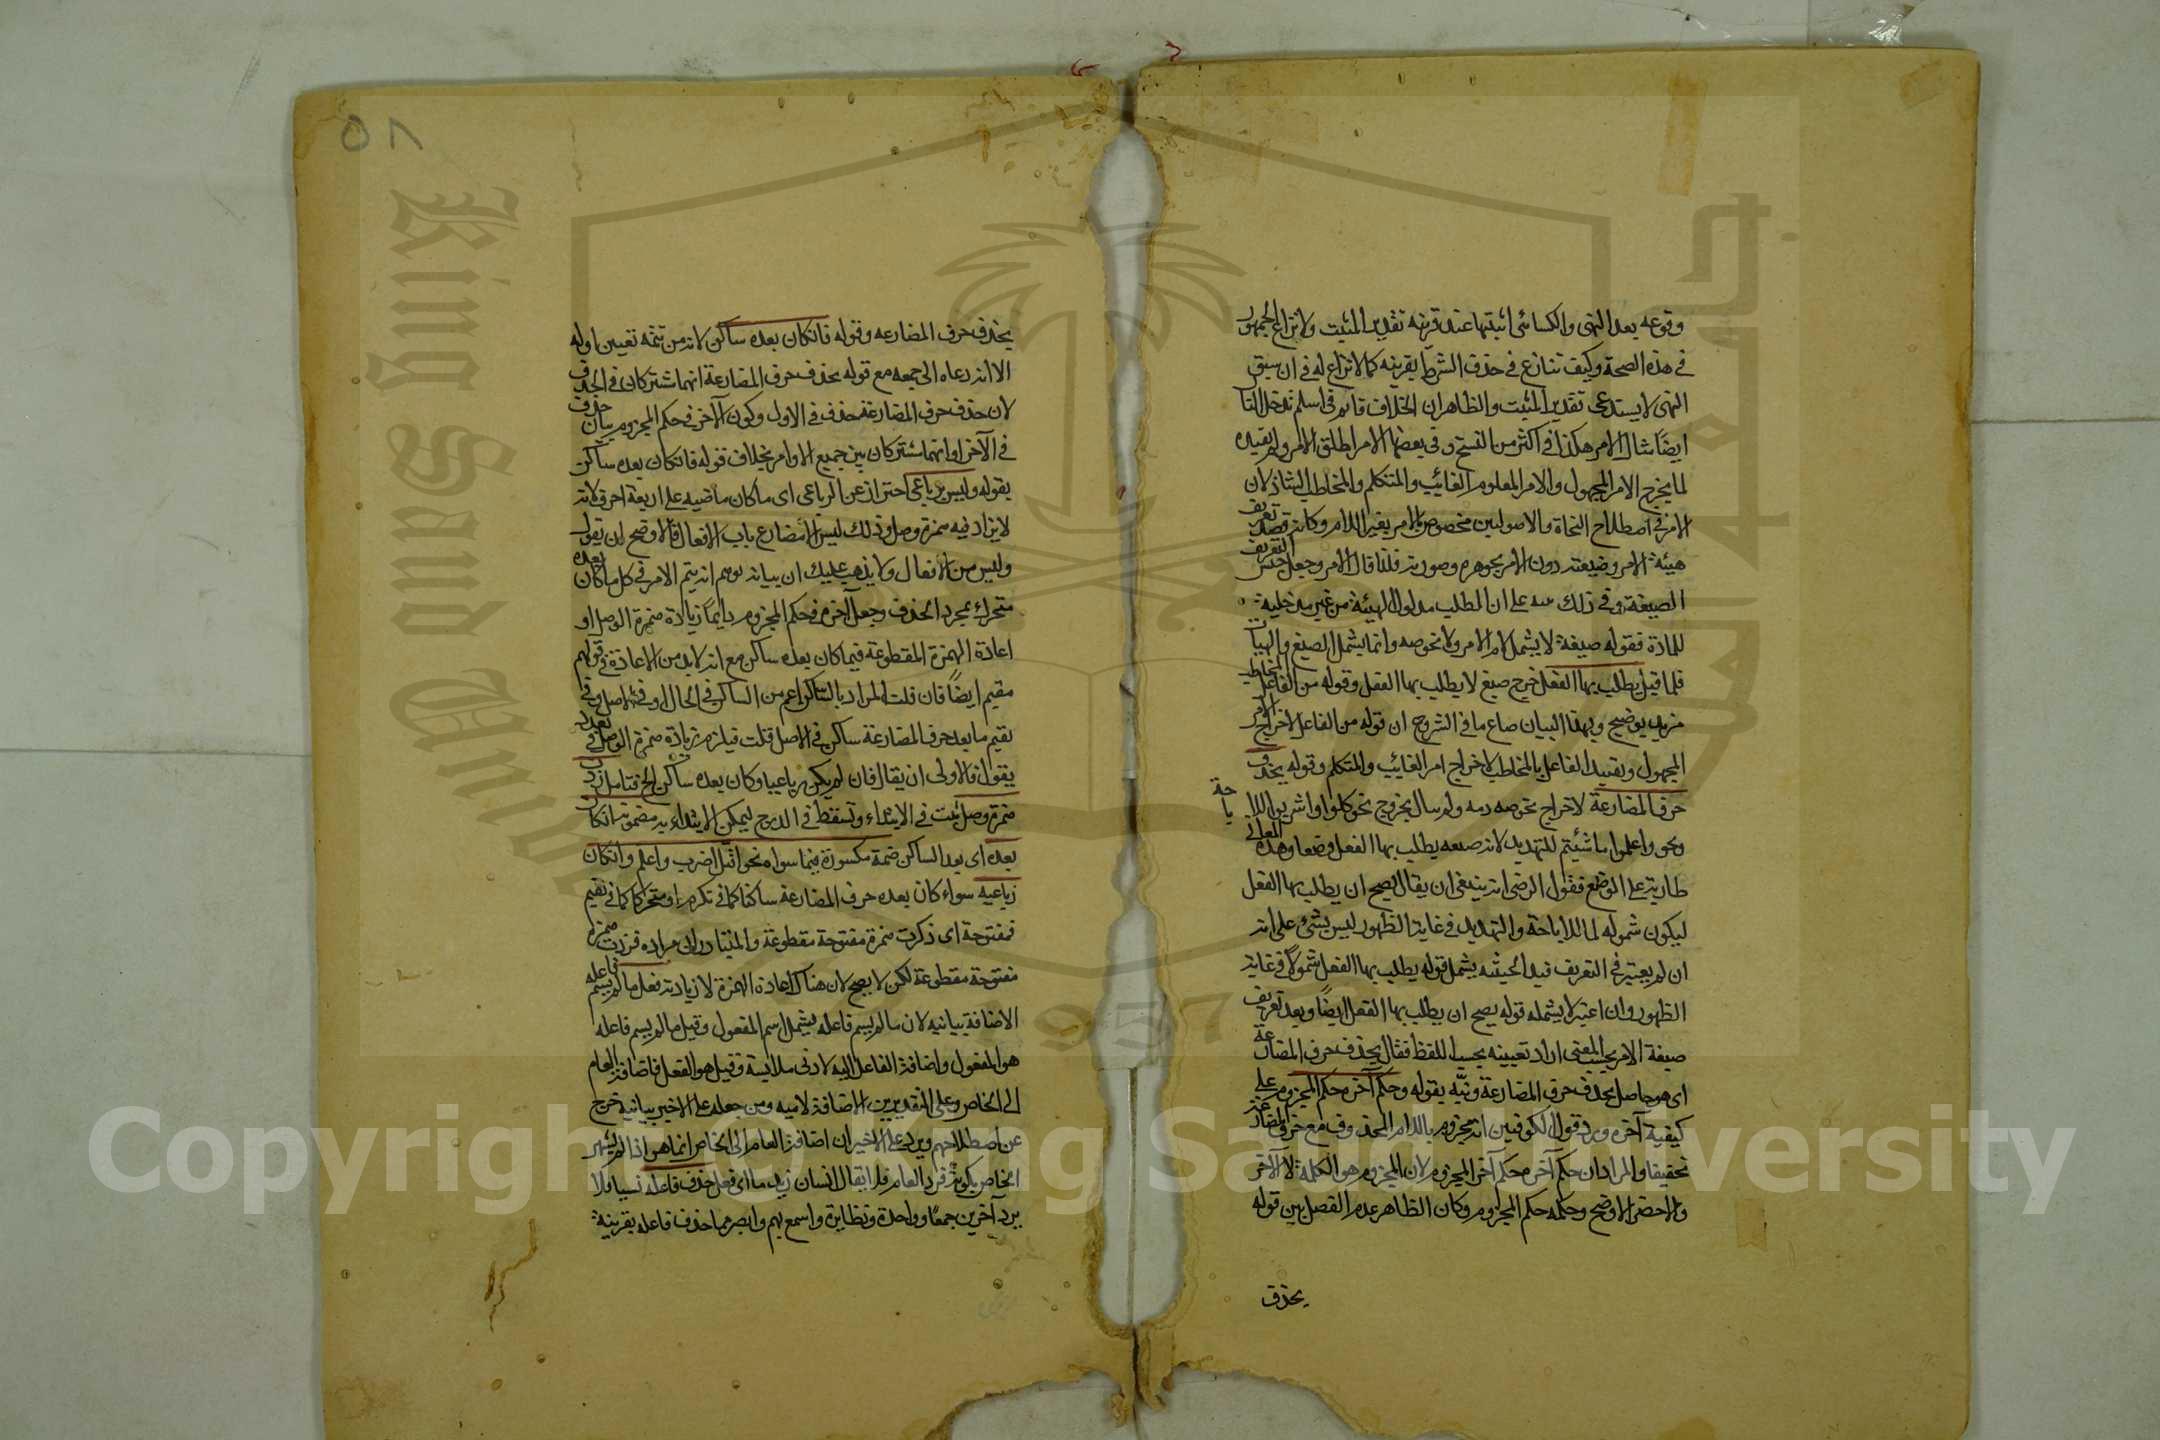 وقوعه بعد النهى والكسائى اثبتها عند قرينه تقدير المثبت ولا نزاع الجمهور
فى هذه الصحة وكيف تنازع فى حذف الشرط بقرينه كما لا نزاع له فى ان سبق
النهى لا يستدعى تقدير المثبت والظاهر ان الخلاف قائم فى اسلم تدخل النا
ايضا مثال الامر هكذا فى اكثر من النسخ وفى بعضها الامر اطلق الامر ولم يقيده
لما يخرج الامر المجهول والامر المعلوم الغائب والمتكلم والمخاطب الشاذ لان
الامر فى اصطلاح النحاة والاصوليين مخصوص بالامر بغير اللام وكانه قصد تعريف
هيئة الامر وضيغته دون الامر بجوهره وصورته فلذا قال الامر وجعل جنس التعريف
الصيغة وفى ذلك على ان المطلب مدلول الهيئة من غير مدخلية
للمادة فقوله صيغة لا يشمل لام الامر ولا نحو صه وانما يشمل الصيغ والهيات
فلما قيل يطلب بها الفعل خرج صيغ لا يطلب بها الفعل وقوله من الفاعل المخاطب
مزيد يوضيح وبهذا البيان ضاع ما فى الشروح ان قوله من الفاعل لاخراج الامر
المجهول وتقييد الفاعل بالمخاطب لاخراج امر الغائب والمتكلم وقوله بحذف
حرف المضارعة لاخراج نحو صه ومه ولم يبال بخروج نحو كلوا واشربوا للا
باحة
ونحو واعلموا ما شئيتم للتهديد لانه صيغه يطلب بها الفعل وضعا وهذه المعانى
طارية على الوضع فقول الرضى انه ينبغى ان يقال يصح ان يطلب بها الفعل
ليكون شموله لما للاباحة والتهديد فى غاية الظهور ليس بشئ على انه
ان لم يعتبر فى التعريف قيد الحيثيه يشمل قوله يطلب بها الفعل شمولا فى غاية
الظهور وان اعتبر لا يشمله قوله يصح ان يطلب بها الفعل ايضا وبعد تعريف
صيغة الامر بحسب المعنى اراد تعيينه بحسب اللفظ فقال بحذف حرف المضارعة
اى هو حاصل بحذف حرف المضارعة ونبه بقوله وحكم آخره حكم المجزوم على
كيفية آخره ورد قول الكوفيين انه مجزوم باللام المحذوف مع حرف المضارعة
تحقيقا والمراد ان حكم آخره حكم آخر المجزوم لان المجزوم هو الكلمة لا الآخر
والاخصر الاوضح وحكمه حكم المجزوم وكان الظاهر عدم الفصل بين قوله
بحذف
بحذف حرف المضارعه وقوله فان كان بعده ساكن لانه من تتمة تعيين اوله
الا انه دعاه الى جمعه مع قوله بحذف حرف المضارعة انهما شتركان فى الحذف
لان حذف حرف المضارعة حذف فى الاول وكون الآخر فى حكم المجزوم بيان حذف
فى الآخر او انهما مشتركان بين جميع الاوامر بخلاف قوله فان كان بعده ساكن
بقوله وليس برباعى احتراز عن الرباعى اى ما كان ماضيه على اربعة احرف لانه
لا يزاد فيه همزة وصل وذلك ليس الا مضارع باب الافعال فالاوضح ان يقول
وليس من الافعال ولا يذهب عليك ان بيانه يوهم انه يتم الامر فى كل ما كان بعده
متحرك بمجرد الحذف وجعل آخره فى حكم المجزوم دايما زيادة همزة الوصل او
اعادة الهمزة المقطوعة فيما كان بعده ساكن مع انه لا بد من الاعادة فى قولهم
مقيم ايضا فان قلت المراد بالساكن اعم من الساكن فى الحال او فى الاصل وفى
تقيم ما بعد حرف المضارعة ساكن فى الاصل قلت فيلزم زيادة همزة الوصل فى تعد
يقول فالاولى ان يقال فان لم يكن رباعيا وكان بعده ساكن الخ فتامل زدت
همزة وصل يثبت فى الابتداء وتسقط فى الدرج ليمكن الابتداء به مضمومة ان كان
بعده اى بعد الساكن ضمة مكسورة فيما سواه نحو اقتل اضرب واعلم وان كان
رباعيه سواء كان بعده حرف المضارعة ساكنا كما فى تكرم او متحركا كما فى تقيم
فمفتوحة اى ذكرت همزة مفتوحة مقطوعة والمتبادر ان مراده فزدت همزة
مفتوحة مقطوعة لكن لا يصح لان هناك اعادة الهمزة لا زيادته فعل ما لم يسم فاعله
الاضافة بيانيه لان ما لم يسم فاعله يشمل اسم المفعول وقيل ما لم يسم فاعله
هو المفعول واضافة الفاعل اليه لادنى ملابسة وقيل هو الفعل فاضافة العام
الى الخاص وعلى التقديرين الاضافة لاميه ومن جعله على الاخير بيانية خرج
عن اصطلاحهم ويرد على الاخير ان اضافة العام الى الخاص انما هو اذا لم يشتهر
الخاص بكونه فرد العام فلا يقال انسان زيد ما اى فعل حذف فاعله نسيا فلا
يرد آخرين جمعا وواحدة ونظايره واسمع بهم وابصر مما حذف فاعله بقرينة
٥٨
King Saud University
1957
Copyright © King Saud University